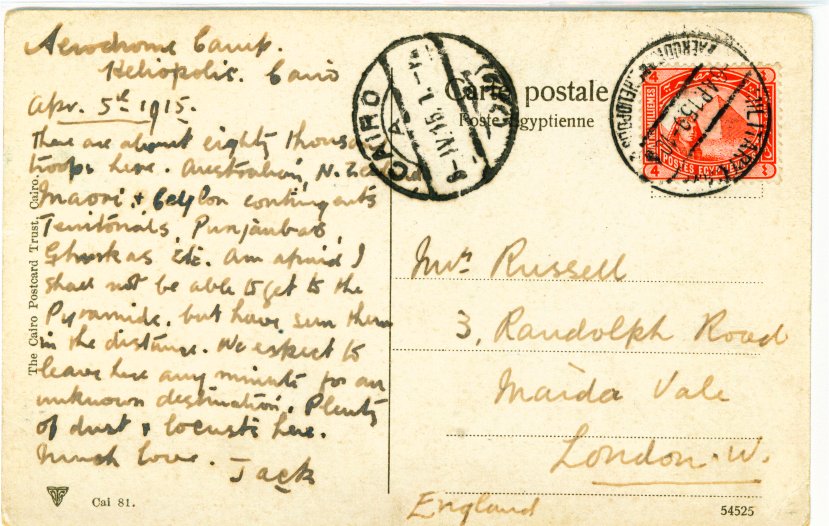 Aerodrome Camp.
Heliopolis. Cairo
Apr. 5th 1915.
There are about eighty thousand
troops here. Australian, N. Zealand
Maori, & Ceylon contingents
Territorials, Punjaubas,
Ghurkas Etc. Am afraid I
shall not be able to get to the
Pyramids, but have seen them
in the distance. We expect to
leave here any minute for an
unknown destination. Plenty
of dust & locusts here.
Much love. Jack
The Cairo Postcard Trust, Cairo.
Cai 81.
Carte postale
Poste égyptienne
CAIRO
A
8-IV.15.1-
MILITARY
HELIOPOLIS
4
POSTES EGYPT
4
Mrs Russell
3, Randolph Road
Maida Vale
London. W.
England
54525